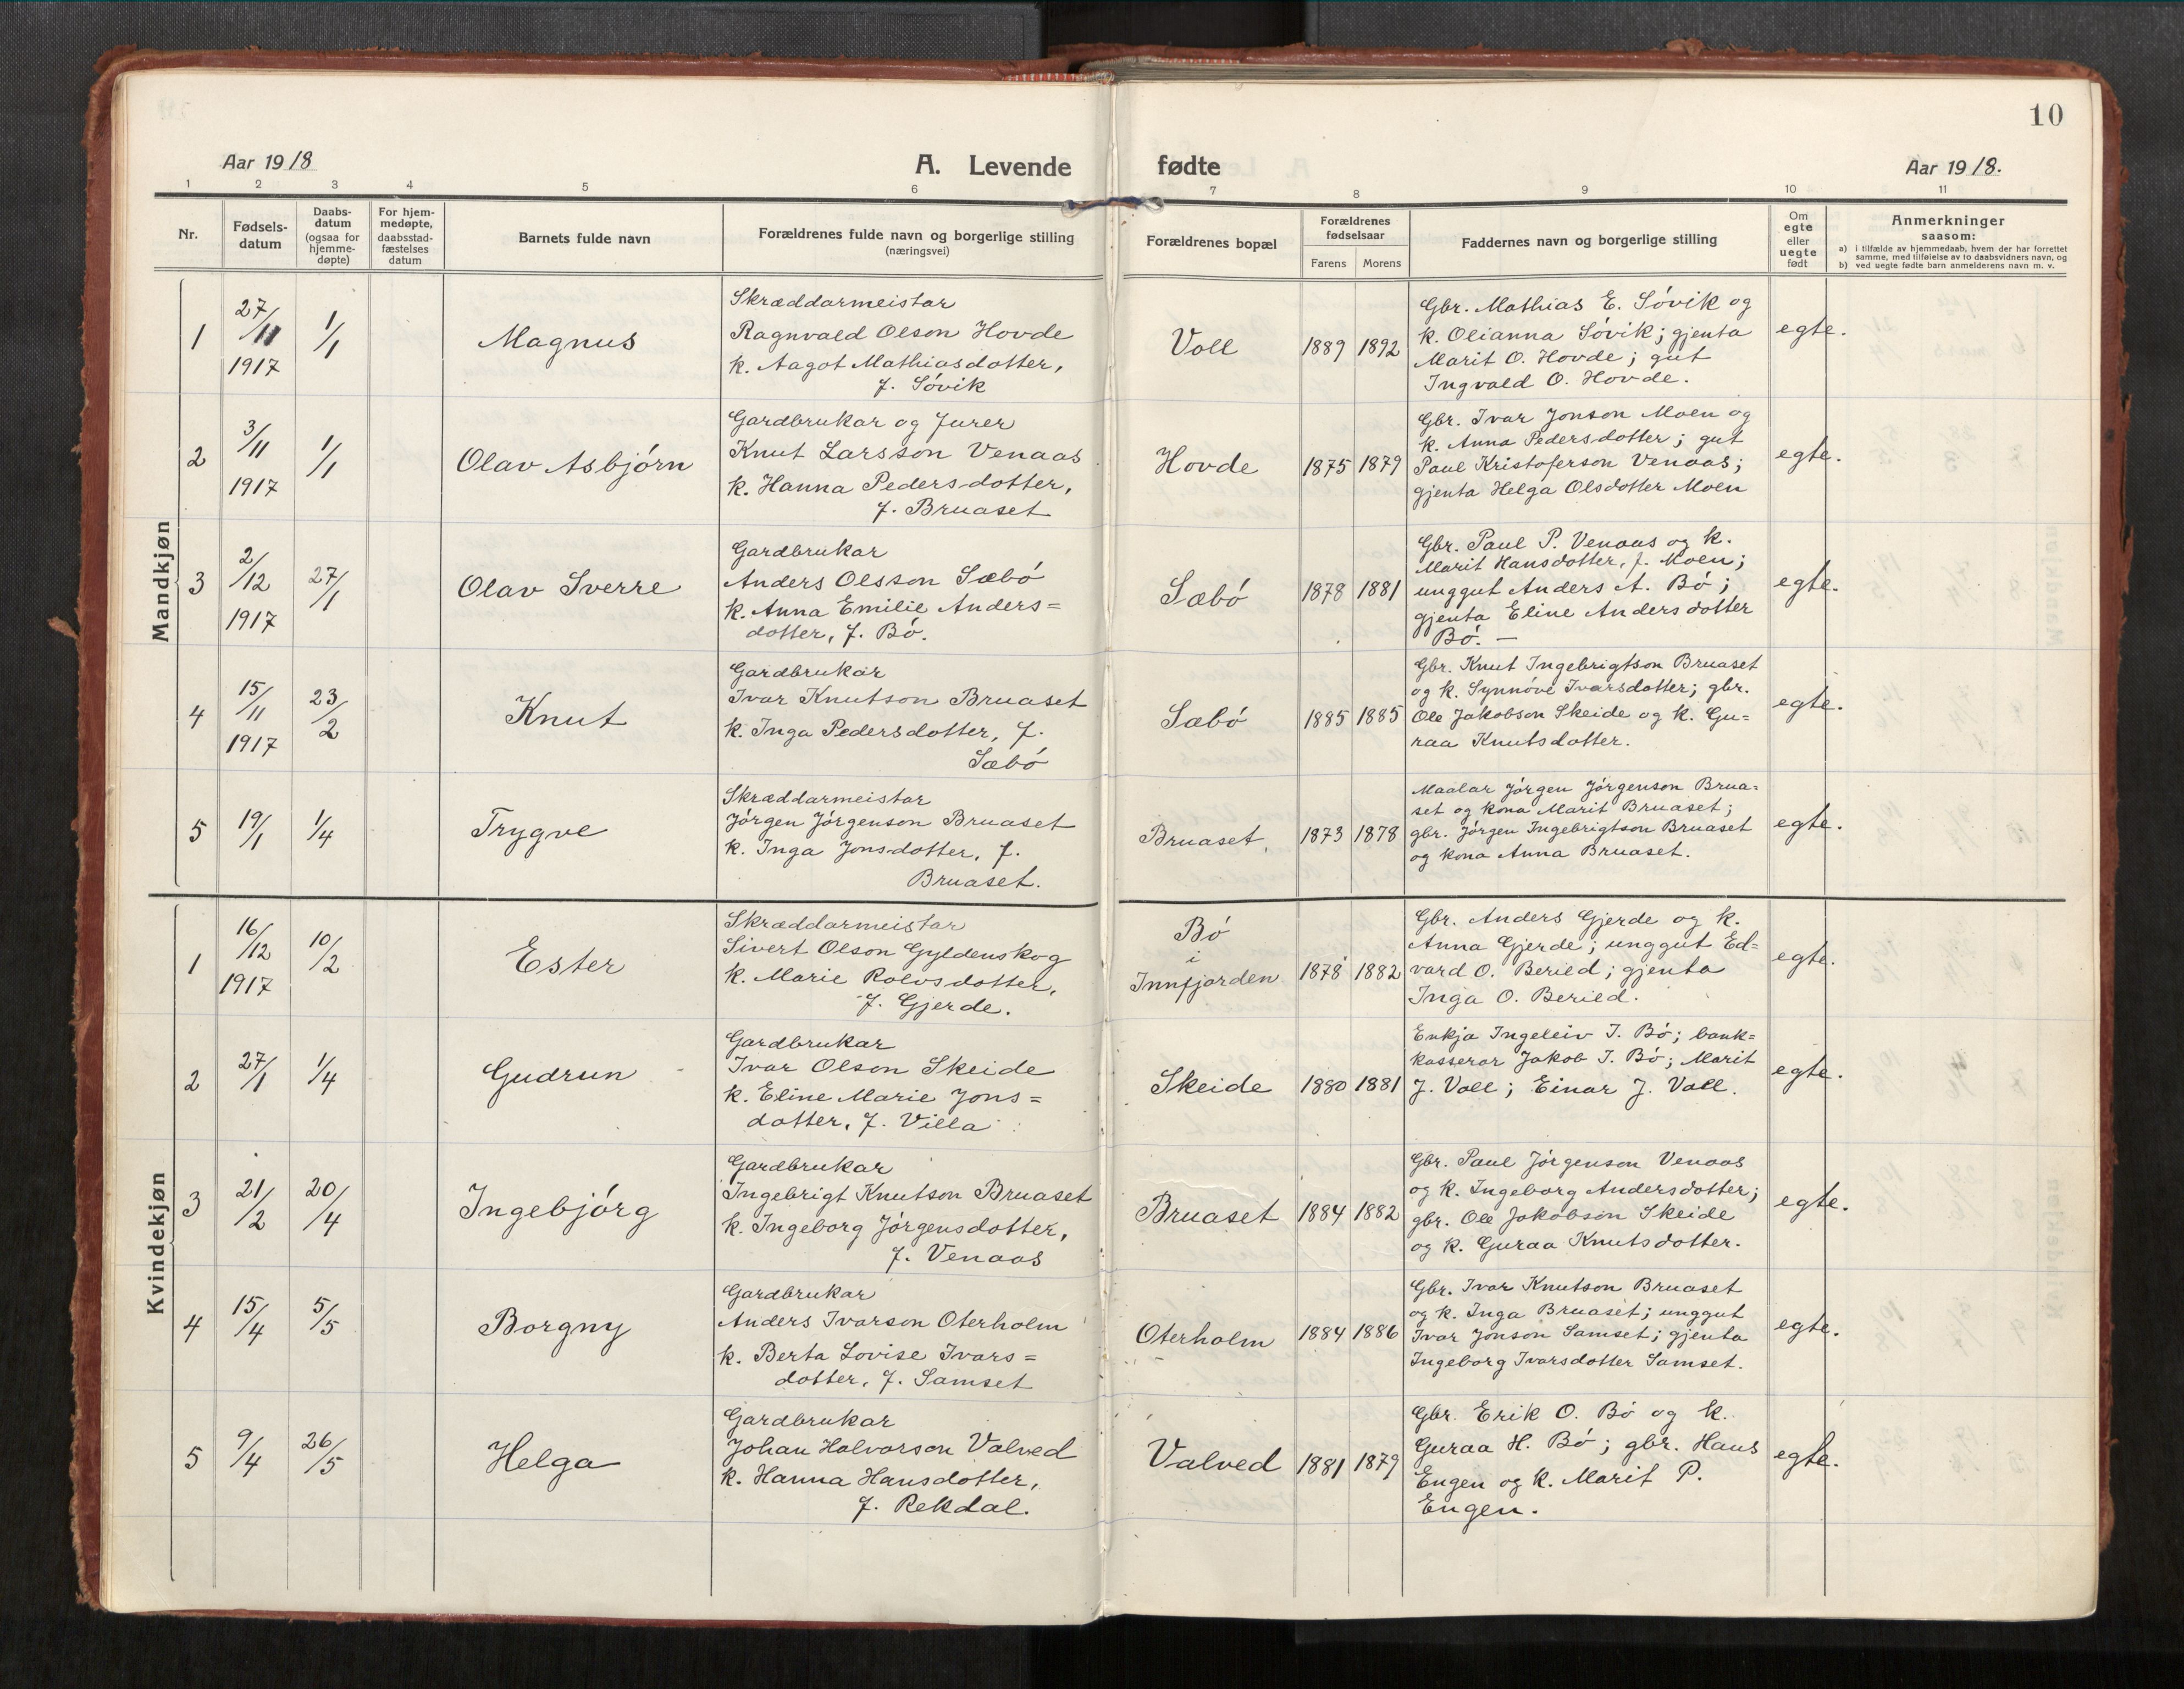 10
Aar 1918
A. Levende fødte
Aar 1918.
1 2 3 4 5 6 7 8 9 10 11
Nr.
Fødsels-
datum
Daabs-
datum
(ogsaa for
hjemme-
døpte)
For hjem-
medøpte,
daabsstad-
fæstelses
datum
Barnets fulde navn
Forældrenes fulde navn og borgerlige stilling
(næringsvei)
Forældrenes bopæl
Forældrenes
fødselsaar
Farens Morens
Faddernes navn og borgerlige stilling
Om
egte
eller
uegte
født
Anmerkninger
saasom:
a) i tilfælde av hjemmedaab, hvem der har forrettet
samme, med tilføielse av to daabsvidners navn, og
b) ved uegte fødte barn anmelderens navn m. v.
Mandkjøn
1
27/11
1917
1/1
Magnus
Skræddarmeistar
Ragnvald Olson Hovde
k. Aagot Mathiasdotter,
f. Sóvik
Voll
1889 1892
Gbr. Mathias E. Sóvik og
k. Olianna Sóvik; gjenta
Marit O. Hovde; gut
Ingvald O. Hovde.
egte.
2
3/11
1917
1/1
Olav Asbjórn
Gardbrukar og Furer
Knut Larsson Venaas
k. Hanna Pedersdotter,
f. Bruaset
Hovde
1875 1879
Gbr. Ivar Jonson Moen og
k. Anna Pedersdotter; gut
Paul Kristoferson Venaas;
gjenta Helga Olsdotter Moen
egte.
3
2/12
1917
27/1
Olav Sverre
Gardbrukar
Anders Olsson Sæbó
k. Anna Emilie Anders=
dotter, f. Bó.
Sæbó
1878 1881
Gbr. Paul P. Venaas og k.
Marit Hansdotter, f. Moen;
unggut Anders A. Bó;
gjenta Eline Andersdotter
Bó. —
egte.
4
15/11
1917
23/2
Knut
Gardbrukar
Ivar Knutson Bruaset
k. Inga Pedersdotter, f.
Sæbó
Sæbó
1885 1885
Gbr. Knut Ingebrigtson Bruaset
og k. Synnóve Ivarsdotter; gbr.
Ole Jakobson Skeide og k. Gu=
raa Knutsdotter.
egte.
5
19/1
1/4
Trygve
Skræddarmeistar
Jórgen Jórgenson Bruaset
k. Inga Jonsdotter, f.
Bruaset.
Bruaset.
1873 1878
Maalar Jórgen Jórgenson Brua=
set og kona Marit Bruaset;
gbr. Jórgen Ingebrigtson Bruaset
og kona Anna Bruaset.
egte.
Kvindekjøn
1
16/12
1917
10/2
Ester
Skræddarmeistar
Sivert Olson Gyldenskog
k. Marie Rolvsdotter,
f. Gjerde.
Bó
i
Innfjorden
1878 1882
Gbr. Anders Gjerde og k.
Anna Gjerde; unggut Ed=
vard O. Beried; gjenta
Inga O. Beried.
egte.
2
27/1
1/4
Gudrun
Gardbrukar
Ivar Olson Skeide
k. Eline Marie Jons=
dotter, f. Villa
Skeide
1880 1881
Enkja Ingeleiv I. Bó; bank=
kasserar Jakob I. Bó; Marit
J. Voll; Einar J. Voll.
egte.
3
21/2
20/4
Ingebjórg
Gardbrukar
Ingebrigt Knutson Bruaset
k. Ingeborg Jórgensdotter,
f. Venaas
Bruaset
1884 1882
Gbr. Paul Jórgenson Venaas
og k. Ingeborg Andersdotter;
gbr. Ole Jakobson Skeide
og k. Guraa Knutsdotter.
egte.
4
15/4
5/5
Borgny
Gardbrukar
Anders Ivarson Oterholm
k. Berta Lovise Ivars=
dotter, f. Samset
Oterholm
1884 1886
Gbr. Ivar Knutson Bruaset
og k. Inga Bruaset; unggut
Ivar Jonson Samset; gjenta
Ingeborg Ivarsdotter Samset.
egte.
5
9/4
26/5
Helga
Gardbrukar
Johan Halvorson Valved
k. Hanna Hansdotter,
f. Rekdal.
Valved
1881 1879
Gbr. Erik O. Bó og k.
Guraa H. Bó; gbr. Hans
Engen og k. Marit P.
Engen.
egte.